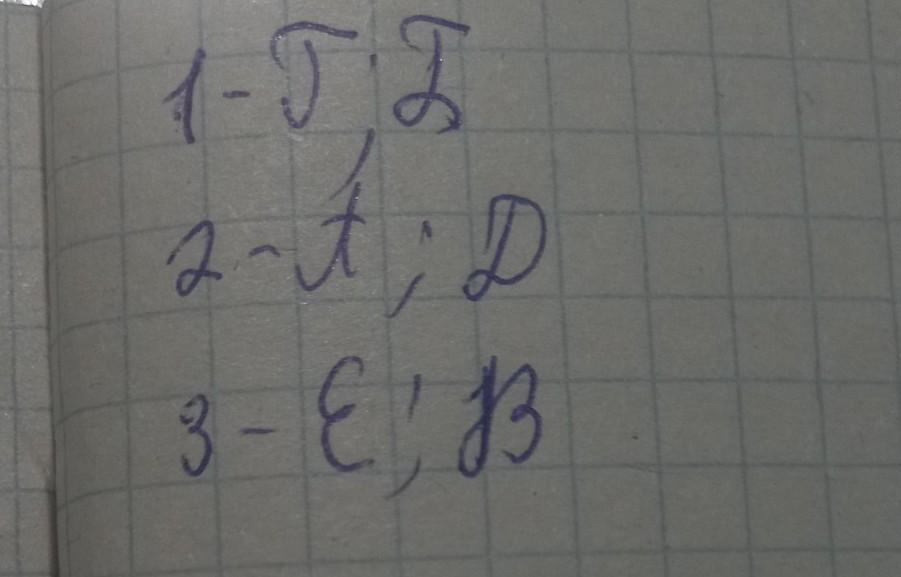 1-Г; Б
2-А; Д
3-Е; В